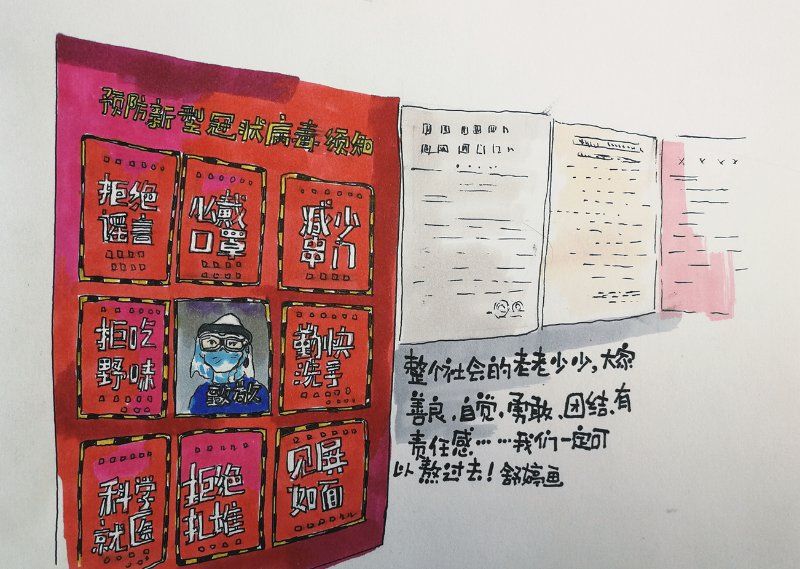 预防新型冠状病毒须知
拒绝
谣言
必戴
口罩
减少
串门
拒吃
野味
致敬
勤快
洗手
科学
就医
拒绝
扎堆
见屏
如面
整个社会的老老少少，大家
善良、自觉、勇敢、团结、有
责任感……我们一定可
以熬过去！舒婷画